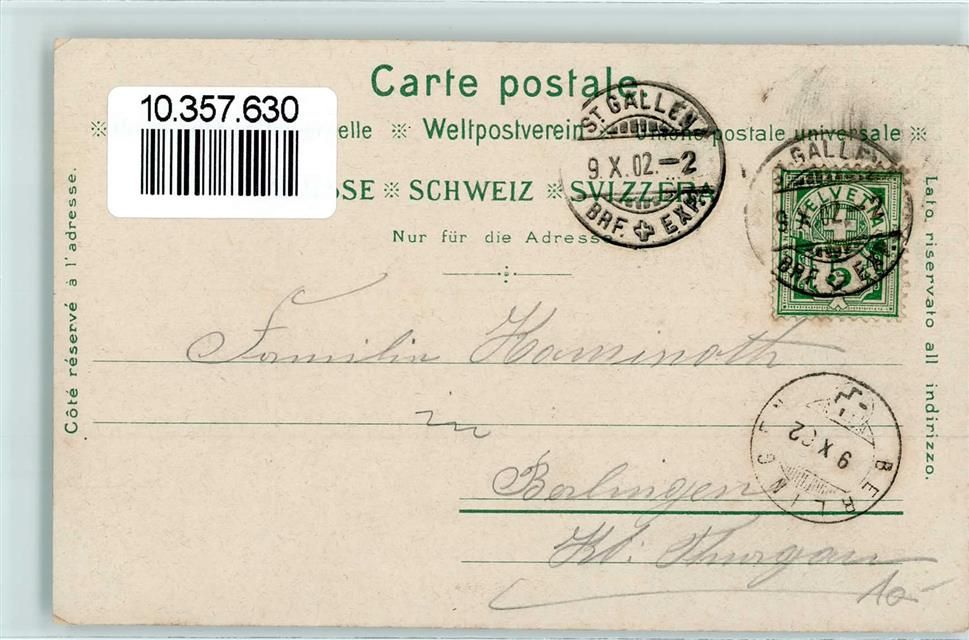 Carte postale
10.357.630
elle ※ Weltpostverein ※ Unione postale universale ※
SSE ※ SCHWEIZ ※ SVIZZERA
Nur für die Adresse
Côté réservé à l'adresse.
Lato riservato all indirizzo.
ST. GALLEN
9. X. 02. – 2
BRF. EXP.
GALLEN
9. X. 02.
BRF. EXP.
HELVETIA
5
Familie
in
Berlingen
Kt. Thurgau
10
BERLINGEN
9 X 02